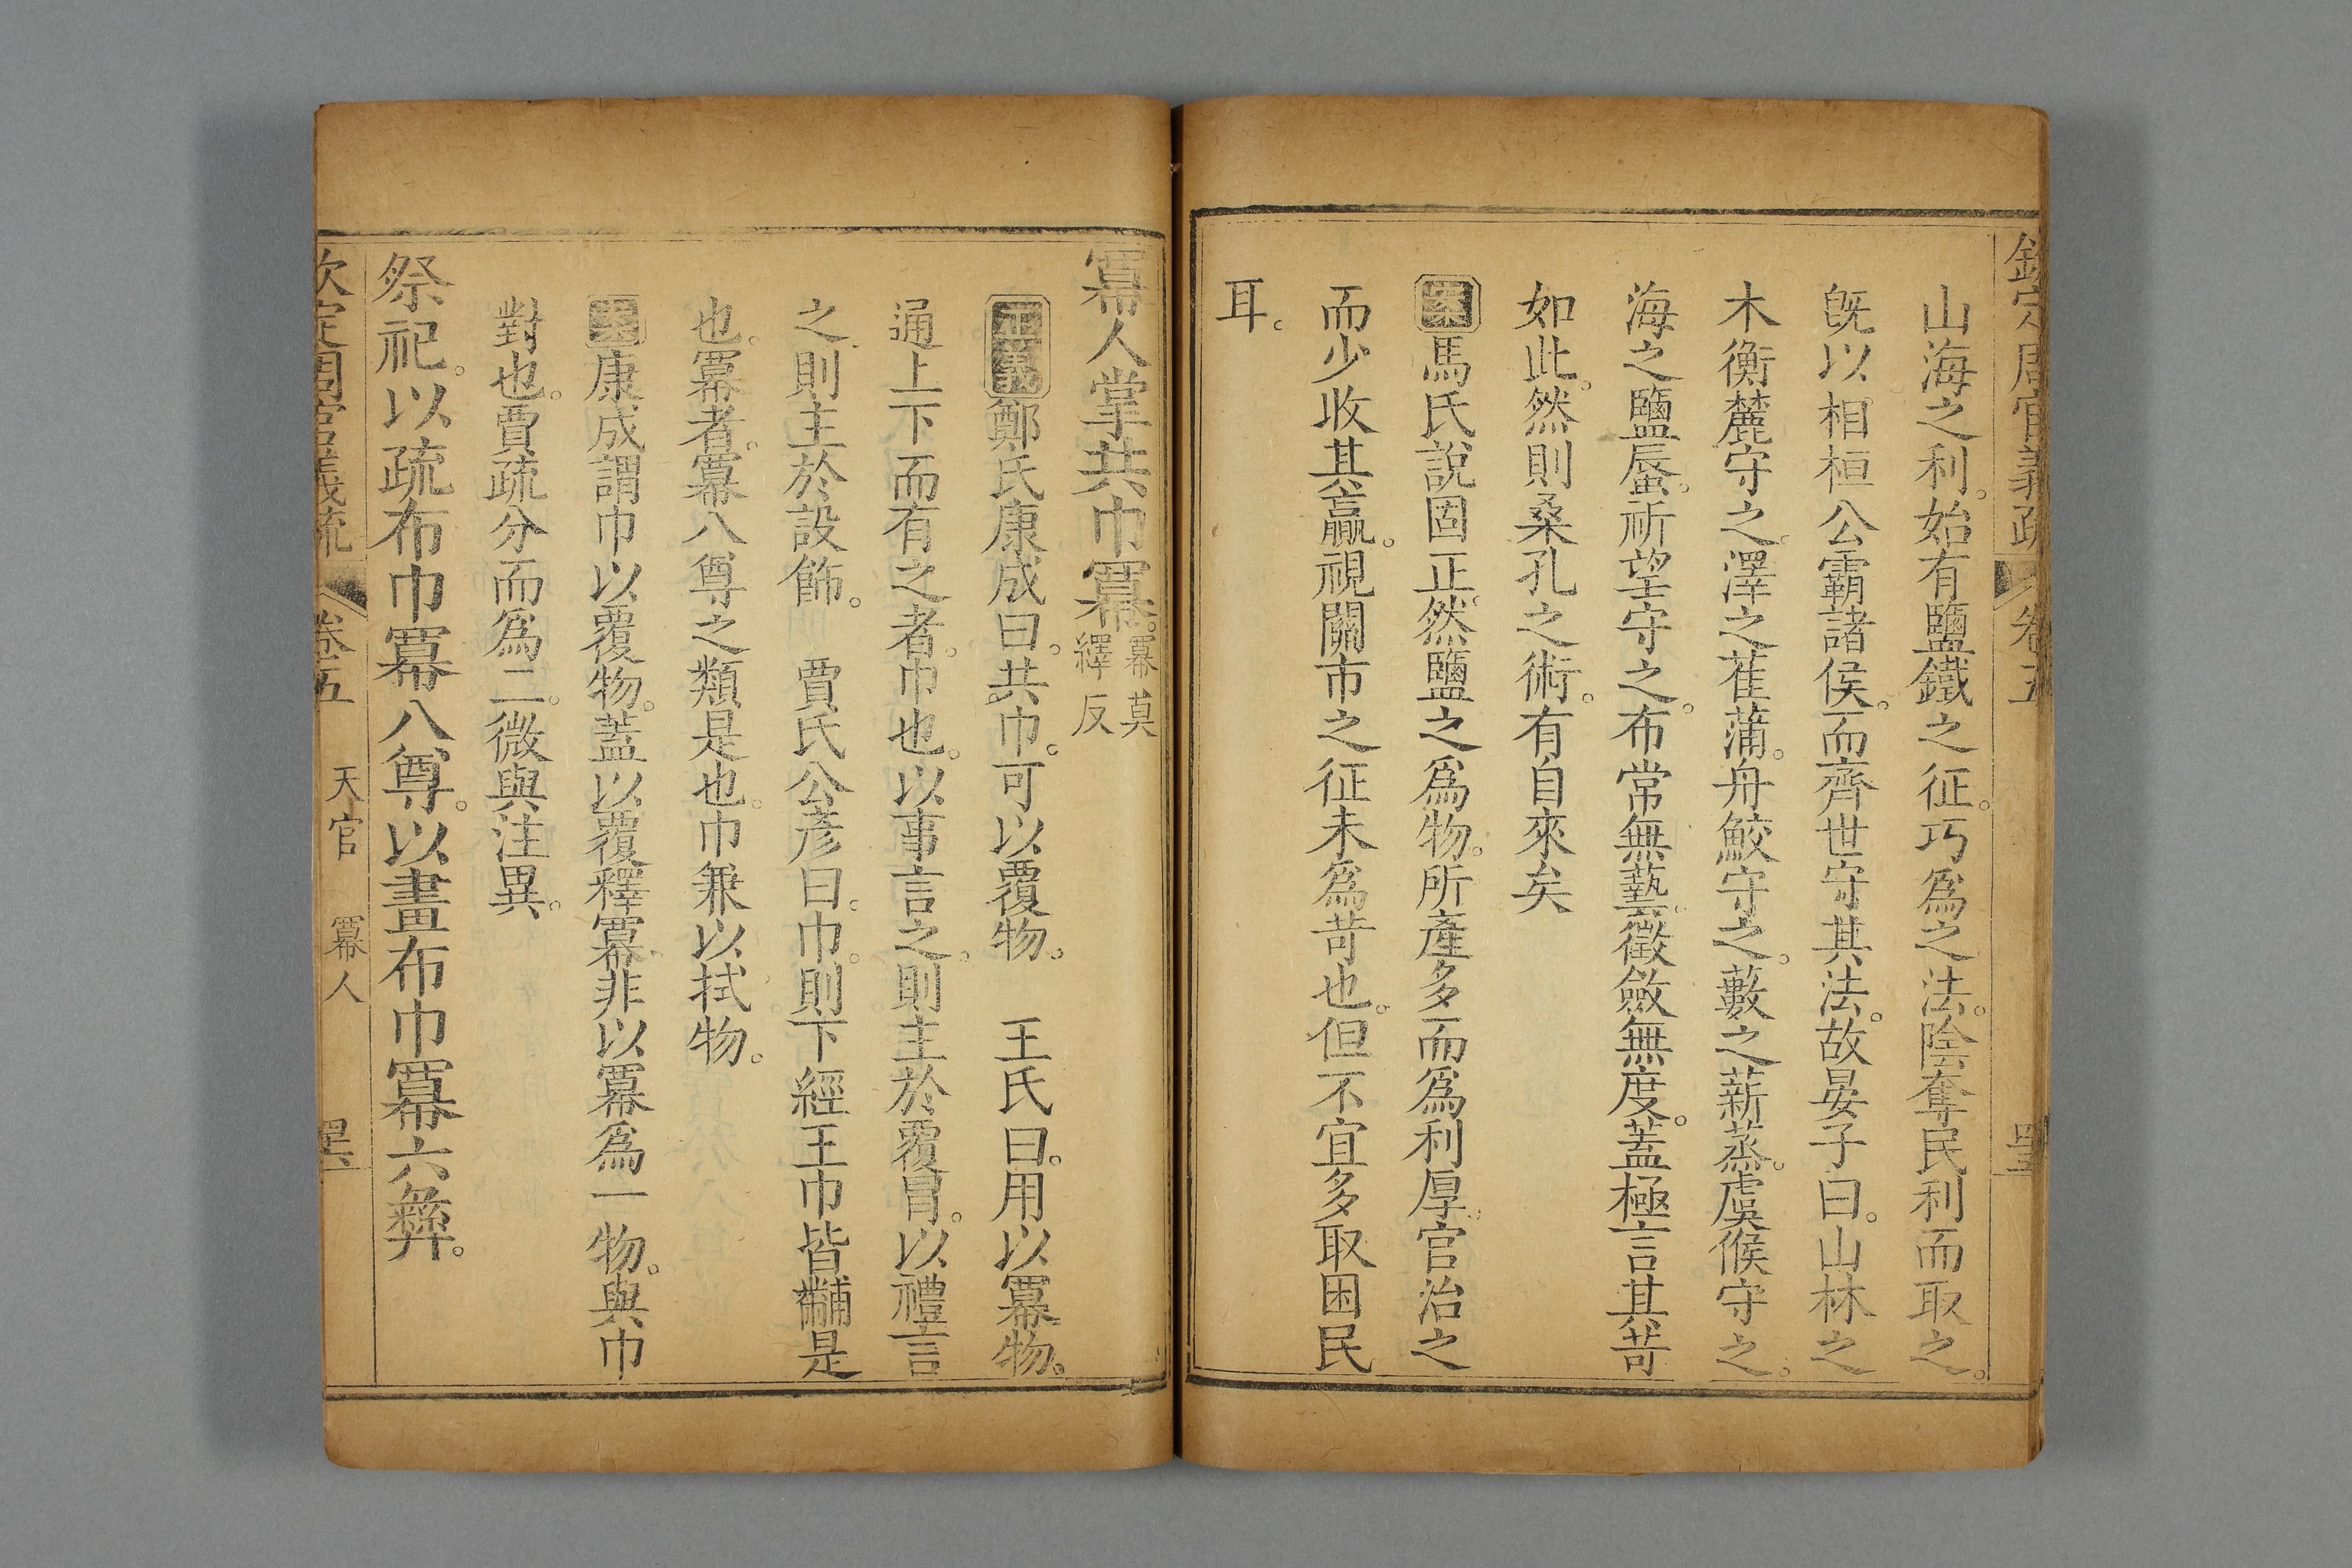 欽定周官義疏 卷五
山海之利。始有鹽鐵之征。巧爲之法。陰奪民利而取之。
旣以相桓公霸諸侯。而齊世守其法。故晏子曰。山林之
木衡麓守之。澤之萑蒲。舟鮫守之。藪之薪蒸。虞候守之。
海之鹽蜃。祈望守之。布常無藝。徵斂無度。蓋極言其苛
如此。然則桑孔之術。有自來矣
案馬氏說固正。然鹽之爲物。所產多而爲利厚。官治之
而少收其贏。視關市之征未爲苛也。但不宜多取困民
耳。
冪人掌共巾冪。冪莫
繹反
正義鄭氏康成曰。共巾。可以覆物。 王氏曰。用以冪物。
通上下而有之者。巾也。以事言之。則主於覆冒。以禮言
之。則主於設飾。 賈氏公彥曰。巾。則下經王巾皆黼是
也。冪者。冪八尊之類是也。巾兼以拭物。
案康成謂巾以覆物。蓋以覆釋冪。非以冪爲一物。與巾
對也。賈疏分而爲二。微與注異。
祭祀。以疏布巾冪八尊。以畫布巾冪六彝。
欽定周官義疏 卷五 天官 冪人